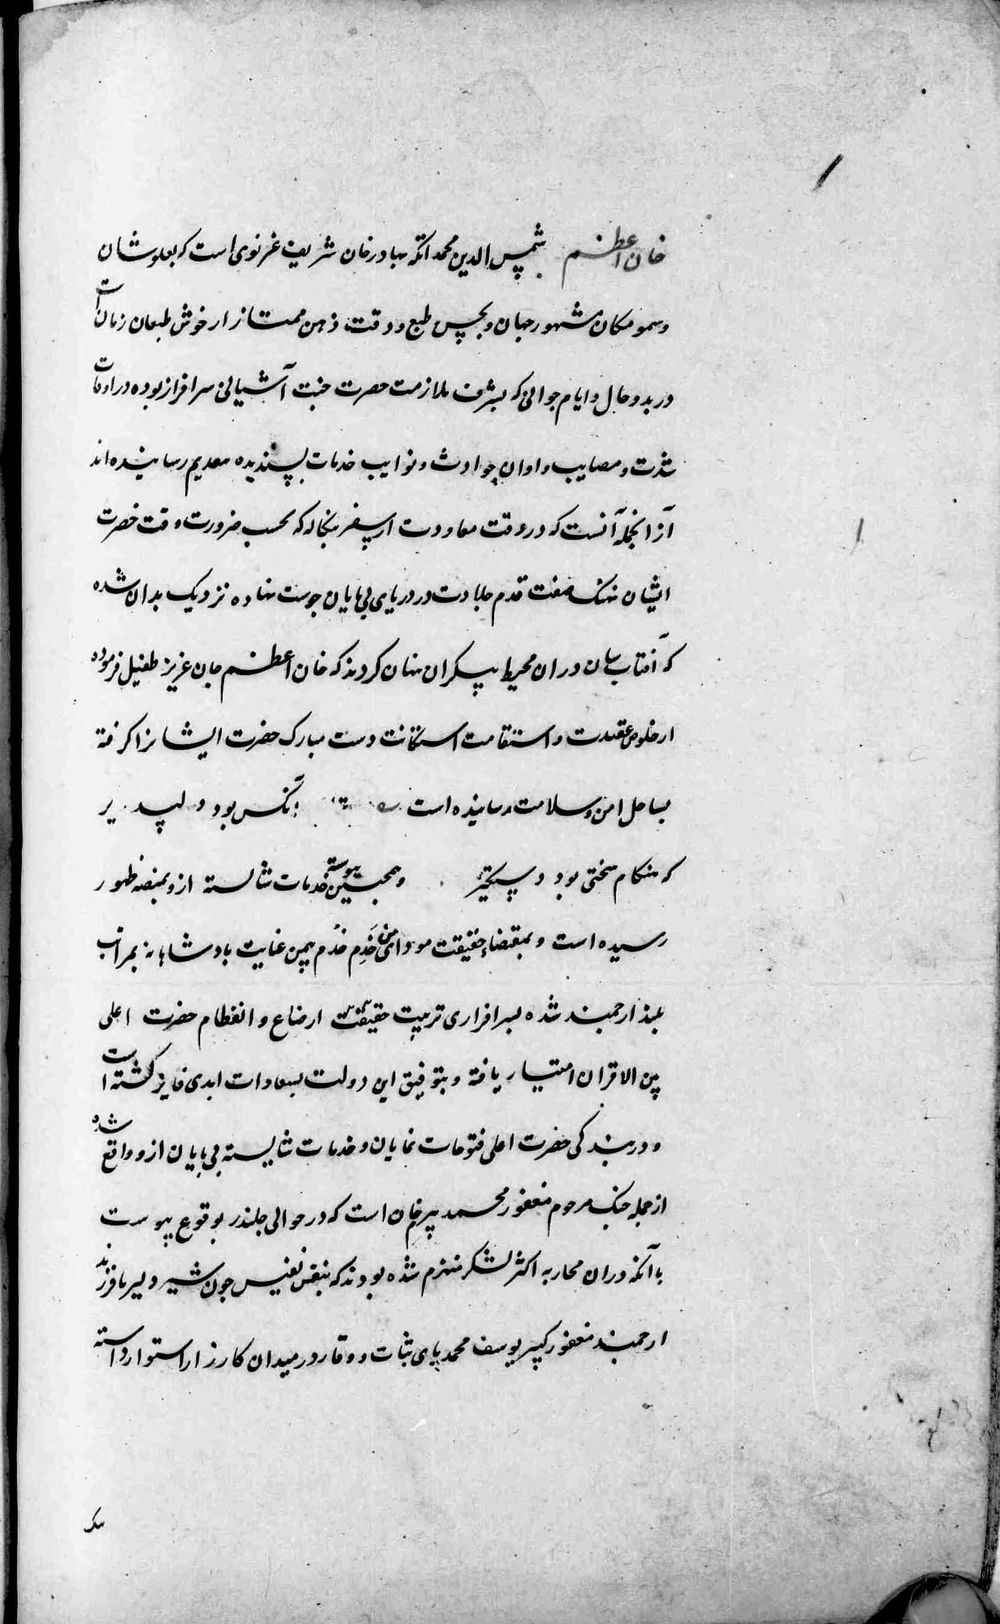 خان اعظم شمس الدین محمد اتکه بهادر خان شریف غزنوی است که بعلو شان
وسمو مکان مشهور جهان و بحس طبع و دقت ذهن ممتاز از خوش طبعان زمان است
در بدو حال و ایام جوانی که بشرف ملازمت حضرت جنت آشیانی سرافراز بوده در اوقات
شدت و مصایب و اوان حوادث و نوایب خدمات پسندیده بتقدیم رسانیده اند
از انجمله آنست که در وقت معاودت از سفر بنکاله که بحسب ضرورت وقت حضرت
ایشان نهنک صفت قدم جلادت در دریای بی پایان جوست نهاده نزدیک بدان شده
که آفتاب سان در ان محیط بیکران نهان کردند که خان اعظم جان عزیز طفیل فرموده
از خلوص عقیدت و استقامت استکانت دست مبارک حضرت ایشانرا کرفته
بساحل امن و سلامت رسانیده است بیت آنکس بود دلپذیر
که هنکام سختی بود دستکیر و همچنین پیوسته خدمات شایسته ازو بمنصه ظهور
رسیده است و بمقتضاء حقیقت موداء من خَدم خُدم بیمن عنایت بادشاهانه بمراتب
بلند ارجمند شده بسرافرازی تربیت حقیقت ارضاع و انفطام حضرت اعلی
بین الاقران امتیاز یافته و بتوفیق این دولت بسعادات ابدی فایز کشته است
و در بندکی حضرت اعلی فتوحات نمایان و خدمات شایسته بی پایان ازو واقع شده
از جمله جنک مرحوم مغفور محمد بیرم خان است که در حوالی جلندر بوقوع پیوست
با آنکه دران محاربه اکثر لشکر منهزم شده بودند که بنفس نفیس چون شیر دلیر با فرزند
ارجمند مغفور کبیر یوسف محمد پای ثبات و وقار در میدان کارزار استوار داشته